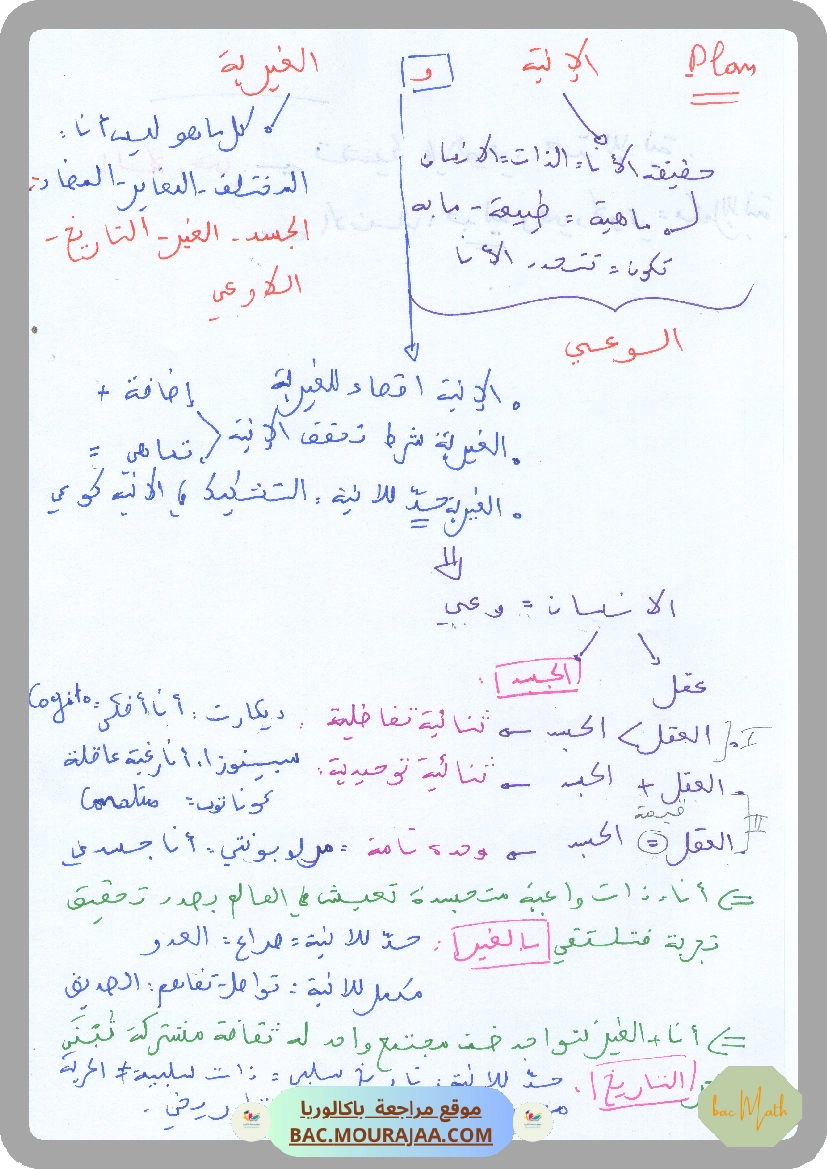 Plan
الإنية و الغيرية
حقيقة الأنا = الذات = الانسان
ماهية = طبيعة - ما به
تكون = تتحدد الأنا
الوعي
كل ما هو ليس أنا :
المختلف - المغاير - المضاد :
الجسد - الغير - التاريخ -
اللاوعي
. الإنية اقصاء للغيرية
. الغيرية شرط تحقق الإنية
إضافة +
تماهي =
. الغيرية حدّ للانية : التشكيك في الانية كوعي
الانسان = وعي
عقل
الجسد :
I . العقل > الجسد ثنائية تفاضلية : ديكارت : أنا أفكر : Cogito
II . العقل + الجسد ثنائية توحيدية : سبينوزا : أنا رغبة عاقلة
كوناتوس = Conatus
العقل = الجسد وحدة تامة = مرلوبونتي : أنا جسدي
قيمة
=> أنا ذات واعية متجسدة تعيش في العالم بصدد تحقيق
تجربة فتلتقي بالغير : حدّ للانية = صراع = العدو
مكمل للانية : تواصل - تفاهم : الصديق
=> أنا + الغير نتواجد ضمن مجتمع واحد له ثقافة مشتركة تُبنى
التاريخ : حدّ للانية : تاريخ سلبي = ذات سلبية ≠ الحرية
موقع مراجعة باكالوريا
BAC.MOURAJAA.COM
bac Math